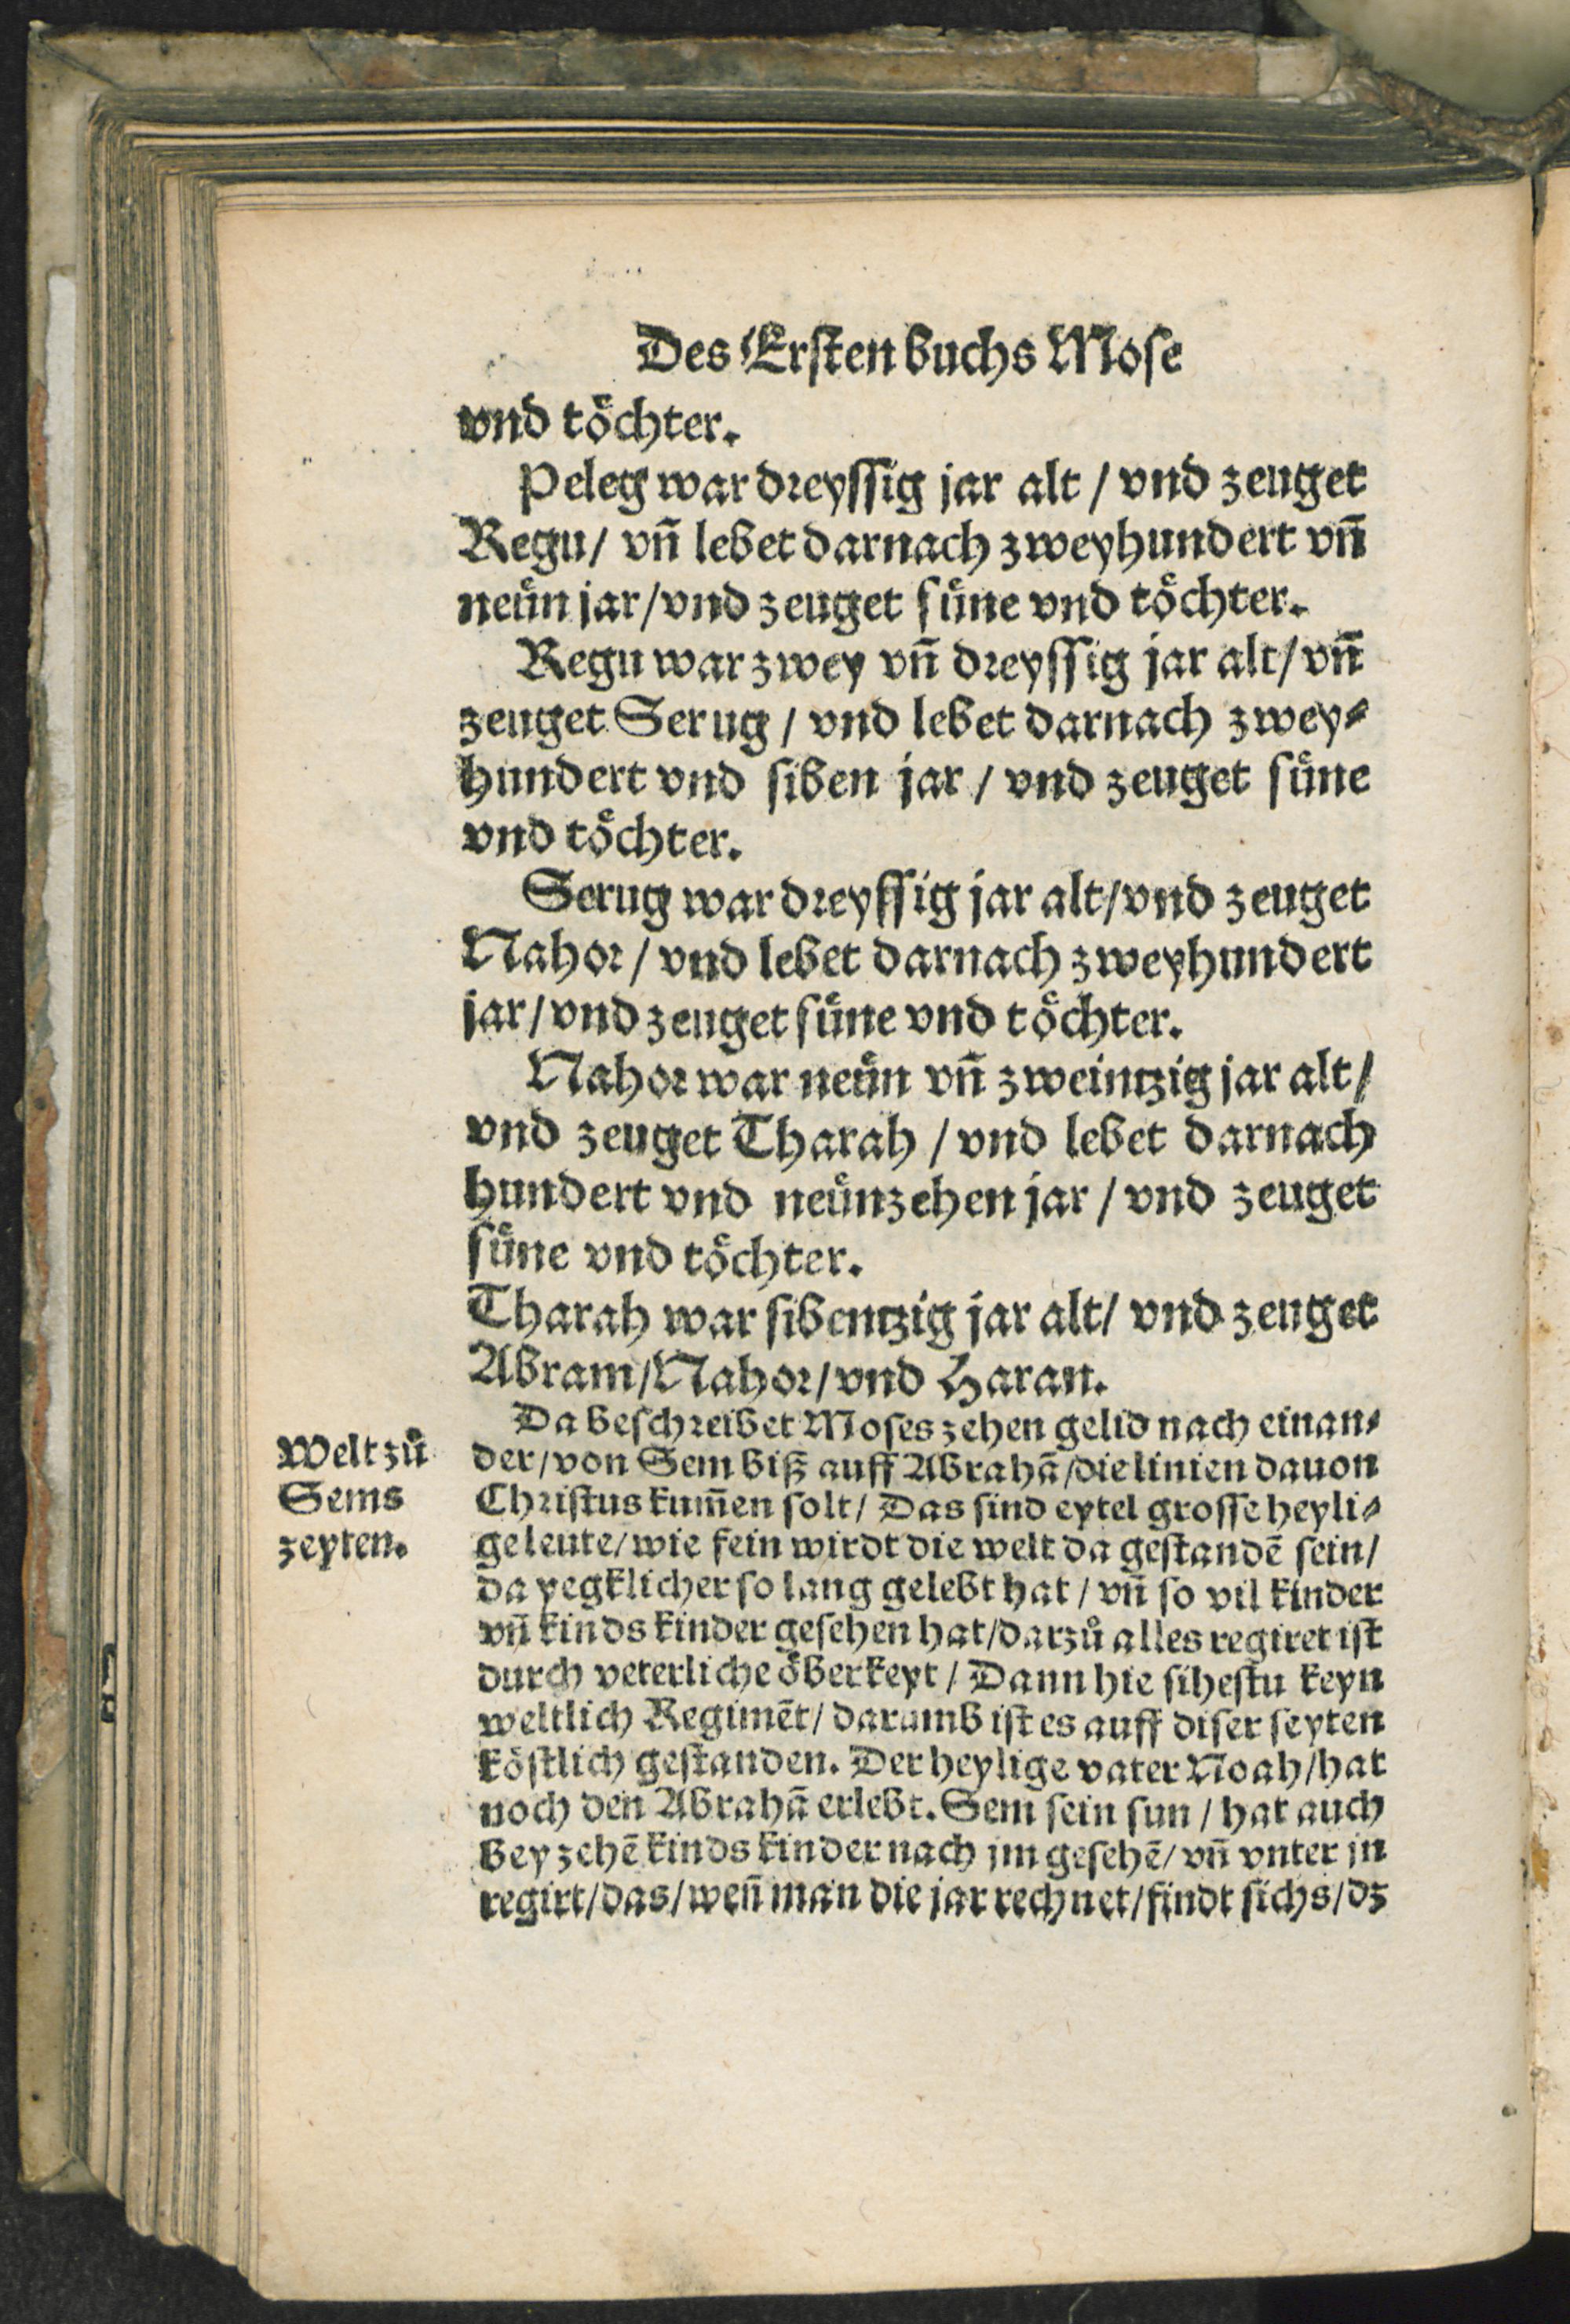 Des Ersten buchs Mose
vnd toͤchter.
Peleg war dreyssig jar alt / vnd zeuget
Regu / vn̄ lebet darnach zweyhundert vn̄
neuͤn jar / vnd zeuget suͤne vnd toͤchter.
Regu war zwey vn̄ dreyssig jar alt / vn̄
zeuget Serug / vnd lebet darnach zwey⸗
hundert vnd siben jar / vnd zeuget suͤne
vnd toͤchter.
Serug war dreyssig jar alt / vnd zeuget
Nahor / vnd lebet darnach zweyhundert
jar / vnd zeuget suͤne vnd toͤchter.
Nahor war neuͤn vn̄ zweintzig jar alt /
vnd zeuget Tharah / vnd lebet darnach
hundert vnd neuͤnzehen jar / vnd zeuget
suͤne vnd toͤchter.
Tharah war sibentzig jar alt / vnd zeuget
Abram / Nahor / vnd Haran.
Welt zuͦ
Sems
zeyten.
Da beschreibet Moses zehen gelid nach einan⸗
der / von Sem biß auff Abrahā / die linien dauon
Christus kum̄en solt / Das sind eytel grosse heyli⸗
ge leute / wie fein wirdt die welt da gestandē sein /
da yegklicher so lang gelebt hat / vn̄ so vil kinder
vn̄ kinds kinder gesehen hat / darzuͦ alles regiret ist
durch veterliche oͤberkeyt / Dann hie sihestu keyn
weltlich Regimēt / darumb ist es auff diser seyten
koͤstlich gestanden. Der heylige vater Noah / hat
noch den Abrahā erlebt. Sem sein sun / hat auch
bey zehē kinds kinder nach jm gesehē / vn̄ vnter jn
regirt / das / wen̄ man die jar rechnet / findt sichs / dz